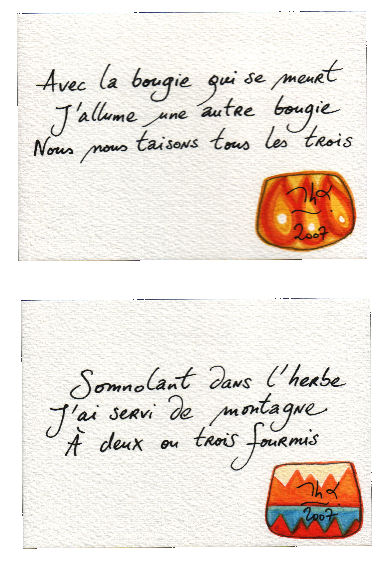 Avec la bougie qui se meurt
J'allume une autre bougie
Nous nous taisons tous les trois
2007
Somnolant dans l'herbe
J'ai servi de montagne
À deux ou trois fourmis
2007